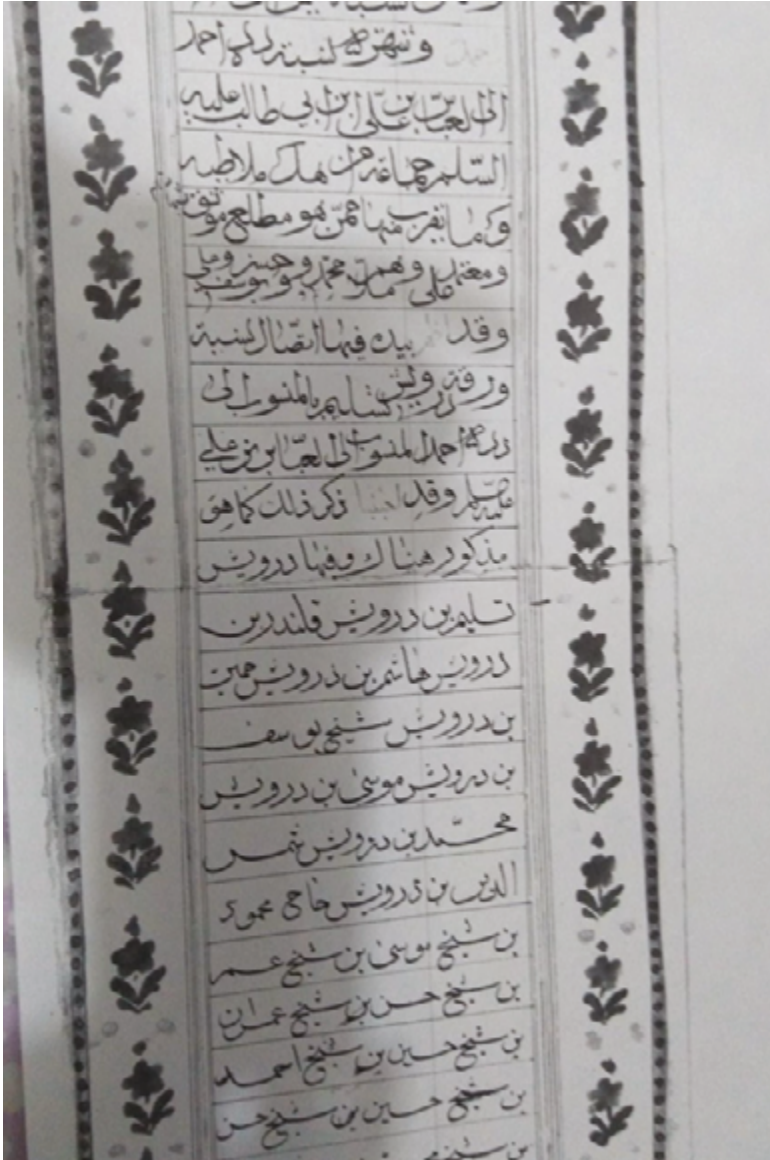 الى العباس بن علي ابن ابي طالب عليه
السّلم جماعة من هناك ملاطيه
وكما يقرب منها ممّن هو مطلع موثوق
ومعتمد علي وهم محمد و يوسف
وقد بين فيها اتصال نسبة
ورقة درويش تسليم المنسوب الى
دده احمد المنسوب الى العباس بن علي
وقد ذكر ذلك كما هو
مذكور هناك وفيها درويش
تسليم بن درويش قلندر بن
درويش هاشم بن درويش حسين
بن درويش شيخ يوسف
بن درويش موسى بن درويش
محمّد بن درويش شمس
الدين بن درويش حاجي محمود
بن شيخ موسى بن شيخ عمر
بن شيخ حسن بن شيخ عمران
بن شيخ حسين بن شيخ اسمعيل
بن شيخ حسين بن شيخ حسن